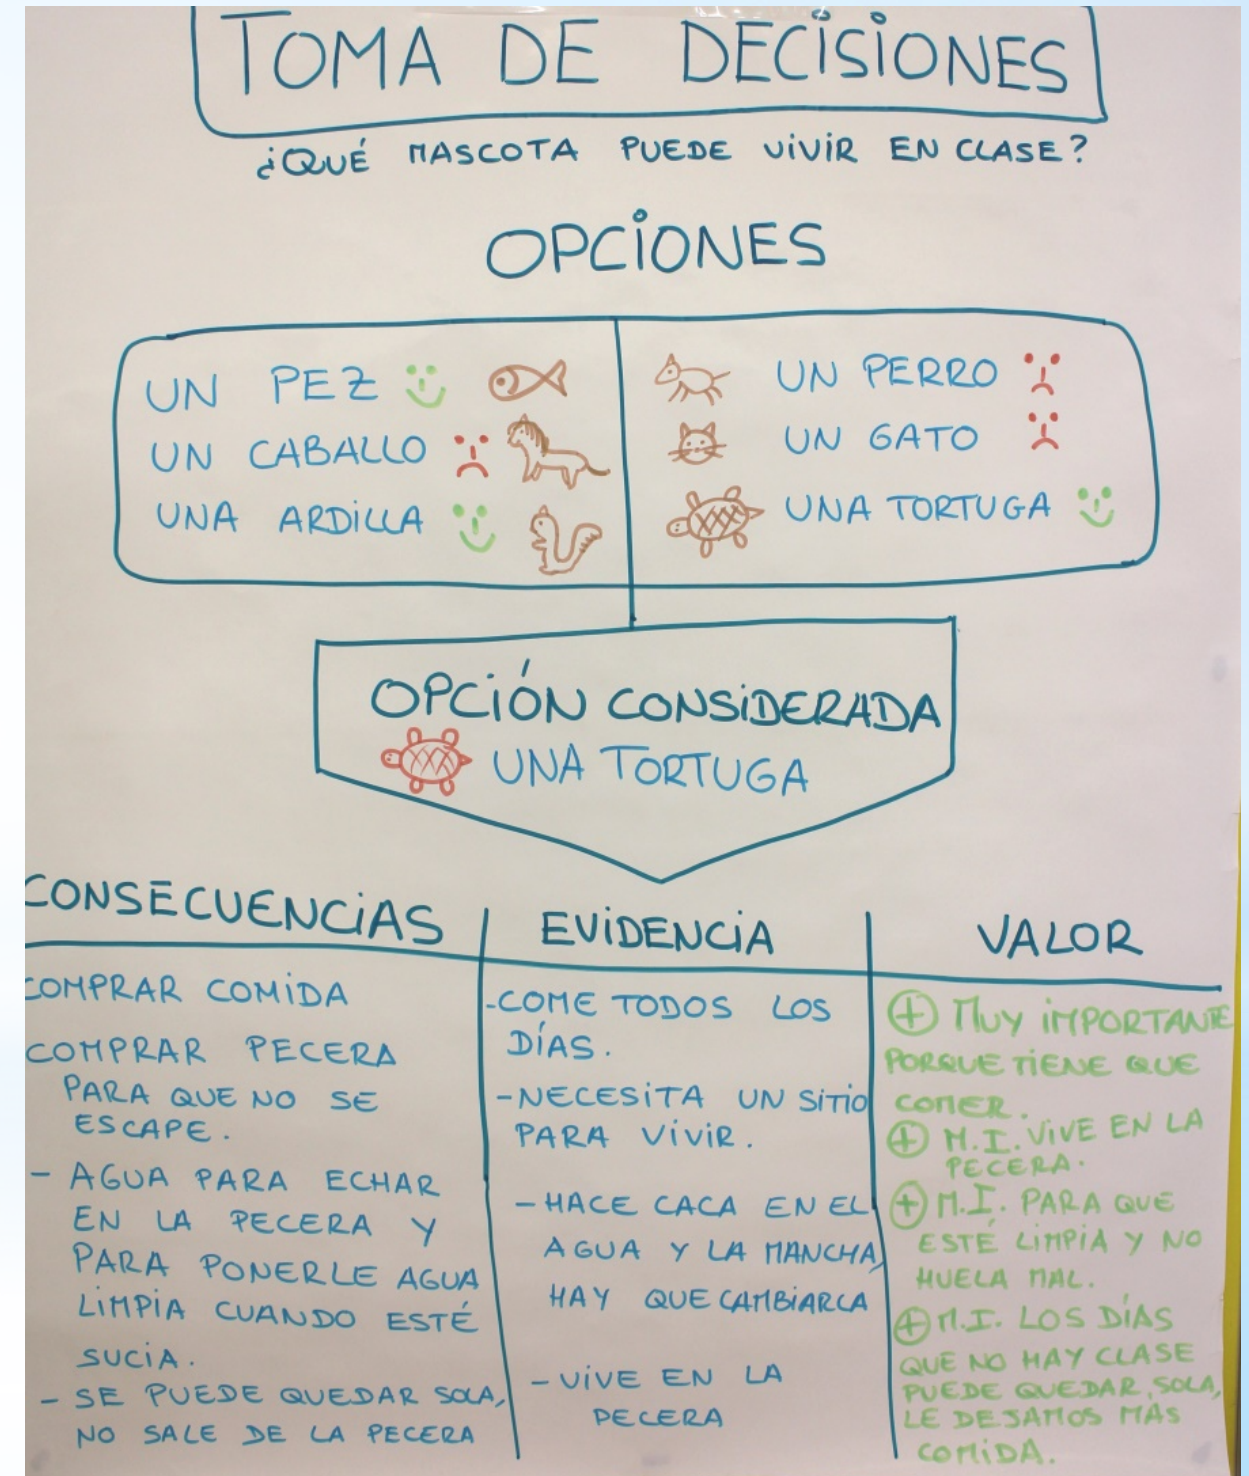 TOMA DE DECISIONES
¿QUÉ MASCOTA PUEDE VIVIR EN CLASE?
OPCIONES
UN PEZ
UN CABALLO
UNA ARDILLA
UN PERRO
UN GATO
UNA TORTUGA
OPCIÓN CONSIDERADA
UNA TORTUGA
CONSECUENCIAS
COMPRAR COMIDA
COMPRAR PECERA
PARA QUE NO SE
ESCAPE.
- AGUA PARA ECHAR
EN LA PECERA Y
PARA PONERLE AGUA
LIMPIA CUANDO ESTÉ
SUCIA.
- SE PUEDE QUEDAR SOLA,
NO SALE DE LA PECERA
EVIDENCIA
-COME TODOS LOS
DÍAS.
-NECESITA UN SITIO
PARA VIVIR.
-HACE CACA EN EL
AGUA Y LA MANCHA,
HAY QUE CAMBIARLA
-VIVE EN LA
PECERA
VALOR
+ MUY IMPORTANTE
PORQUE TIENE QUE
COMER.
+ M.I. VIVE EN LA
PECERA.
+ M.I. PARA QUE
ESTÉ LIMPIA Y NO
HUELA MAL.
+ M.I. LOS DÍAS
QUE NO HAY CLASE
PUEDE QUEDAR SOLA,
LE DEJAMOS MAS
COMIDA.